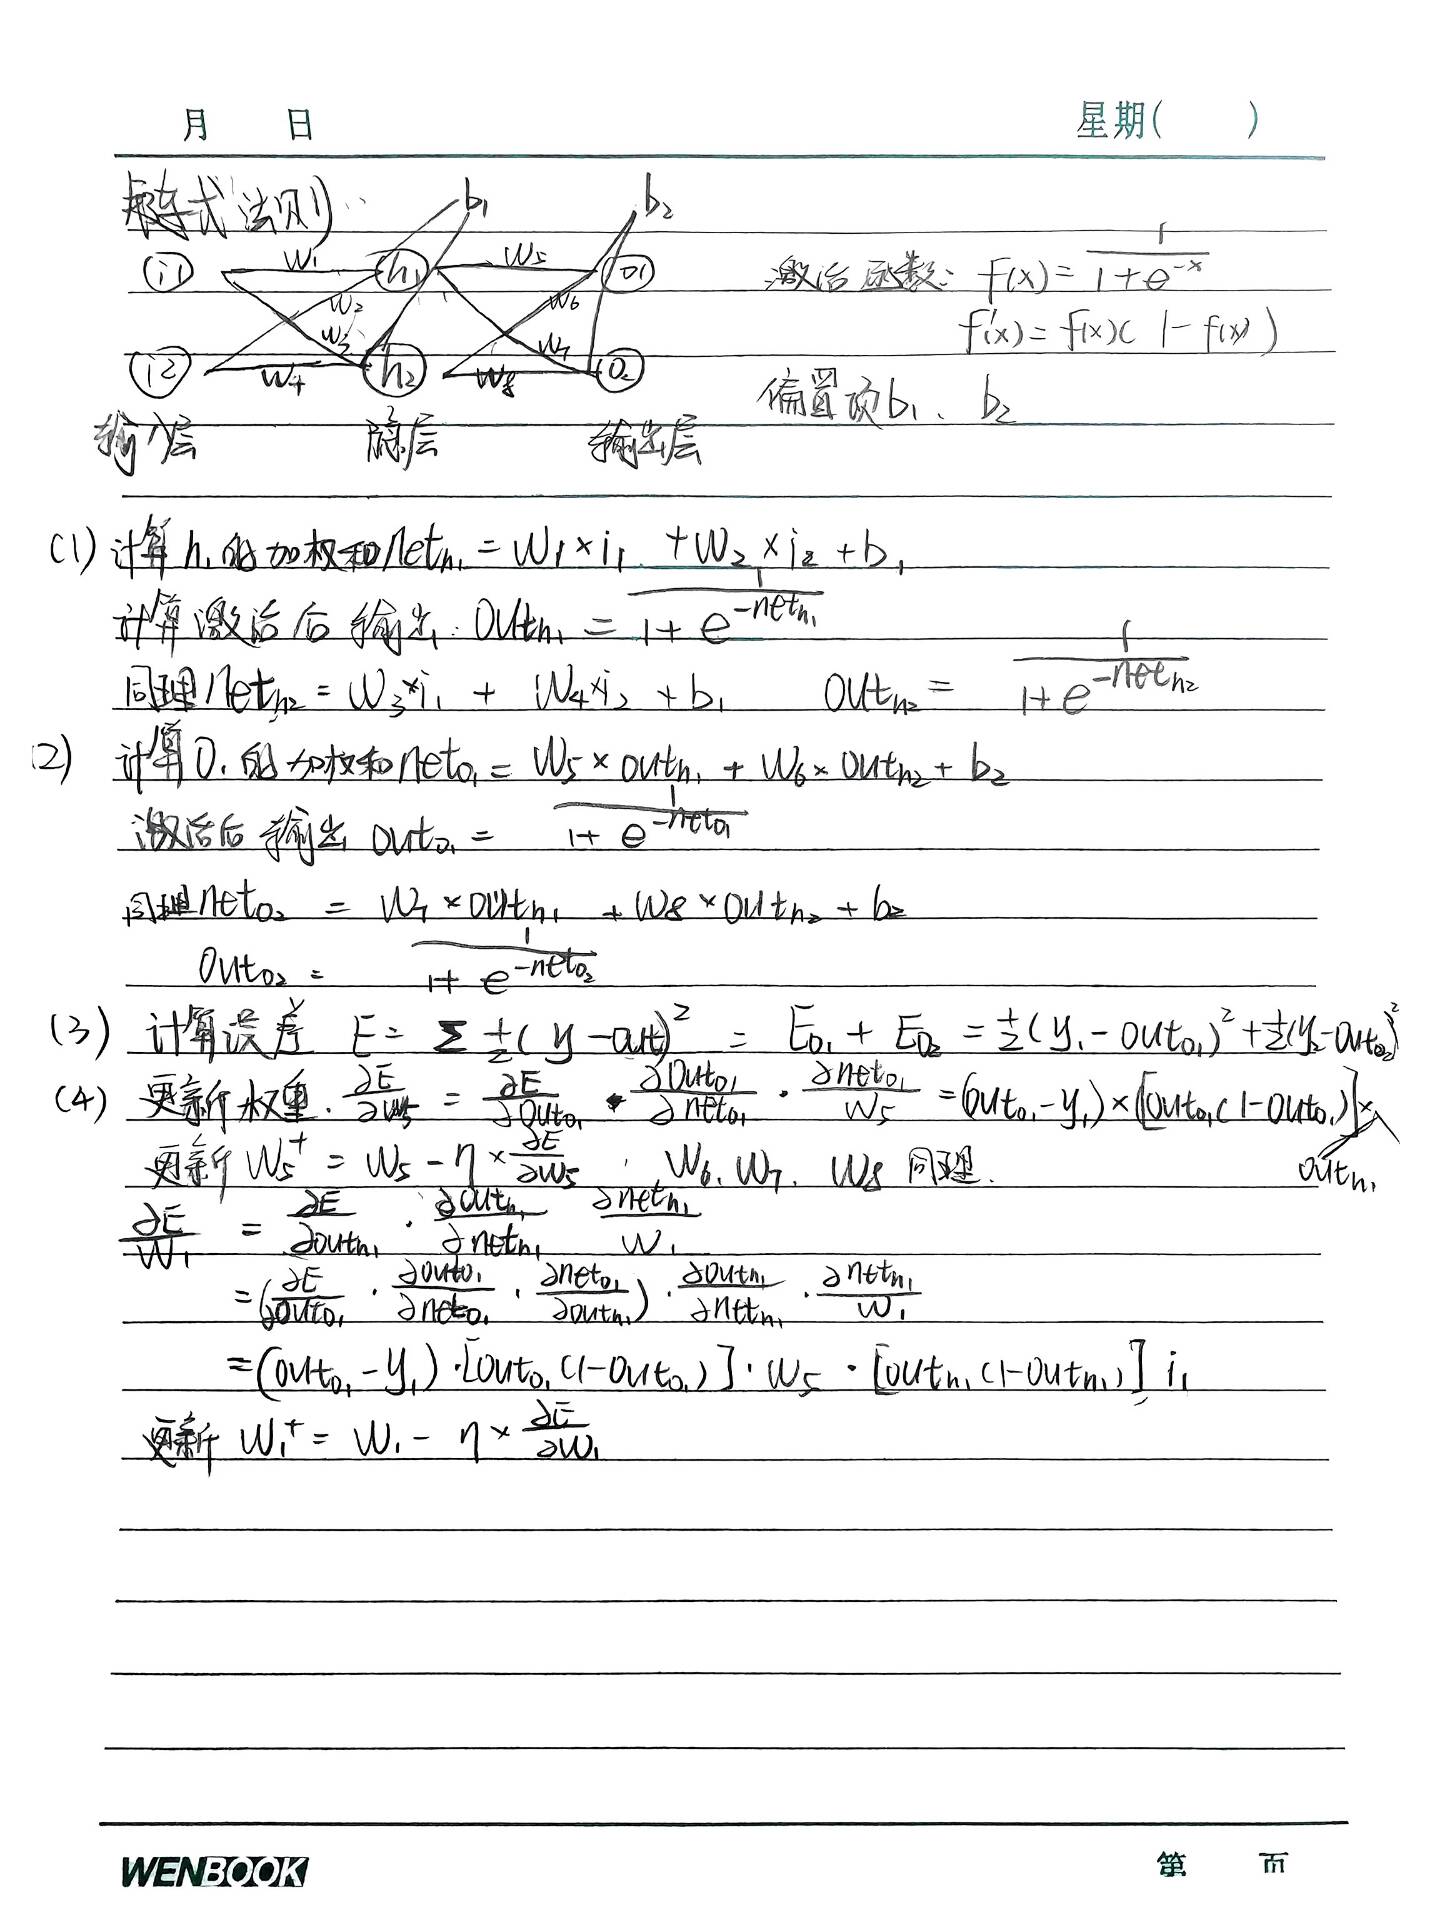 月 日 星期( )
链式法则
b₁ b₂
i1 w₁ h₁ w₅ o1
激活函数: f(x) = 1/(1+e^-x)
w₂ w₆
w₃ w₇
f'(x) = f(x)(1-f(x))
i2 w₄ h₂ w₈ o₂
偏置项b₁、b₂
输入层 隐层 输出层
(1) 计算h₁的加权和net_h₁ = w₁×i₁ + w₂×i₂ + b₁
计算激活后输出: out_h₁ = 1/(1+e^-net_h₁)
同理net_h₂ = w₃×i₁ + w₄×i₂ + b₁ out_h₂ = 1/(1+e^-net_h₂)
(2) 计算O₁的加权和net_o₁ = w₅×out_h₁ + w₆×out_h₂ + b₂
激活后输出out_o₁ = 1/(1+e^-net_o₁)
同理net_o₂ = w₇×out_h₁ + w₈×out_h₂ + b₂
out_o₂ = 1/(1+e^-net_o₂)
(3) 计算误差 E = Σ ½(y-out)² = E_o₁ + E_o₂ = ½(y₁-out_o₁)² + ½(y₂-out_o₂)²
(4) 更新权重. ∂E/∂w₅ = ∂E/∂out_o₁ · ∂out_o₁/∂net_o₁ · ∂net_o₁/w₅ = (out_o₁-y₁)×[out_o₁(1-out_o₁)]×out_h₁
更新 w₅⁺ = w₅ - η×∂E/∂w₅ . w₆、w₇、w₈ 同理.
∂E/w₁ = ∂E/∂out_h₁ · ∂out_h₁/∂net_h₁ ∂net_h₁/w₁
=(∂E/∂out_o₁ · ∂out_o₁/∂net_o₁ · ∂net_o₁/∂out_h₁) · ∂out_h₁/∂net_h₁ · ∂net_h₁/w₁
=(out_o₁-y₁)·[out_o₁(1-out_o₁)]·w₅·[out_h₁(1-out_h₁)] i₁
更新 w₁⁺ = w₁ - η×∂E/∂w₁
WENBOOK 第 页